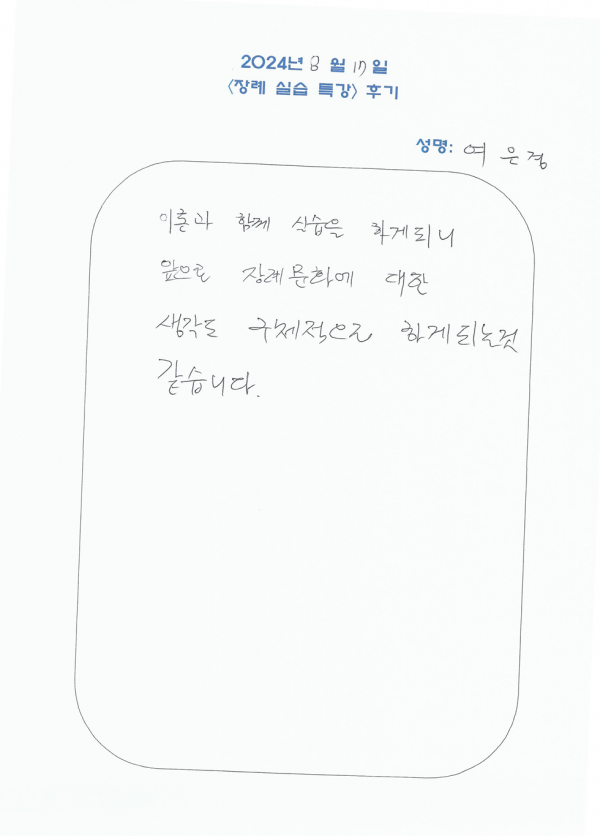 2024년 8월 17일
<장례 실습 특강> 후기
성명: 여은경
이론과 함께 실습을 하게되니
앞으로 장례문화에 대한
생각도 구체적으로 하게되는것
같습니다.